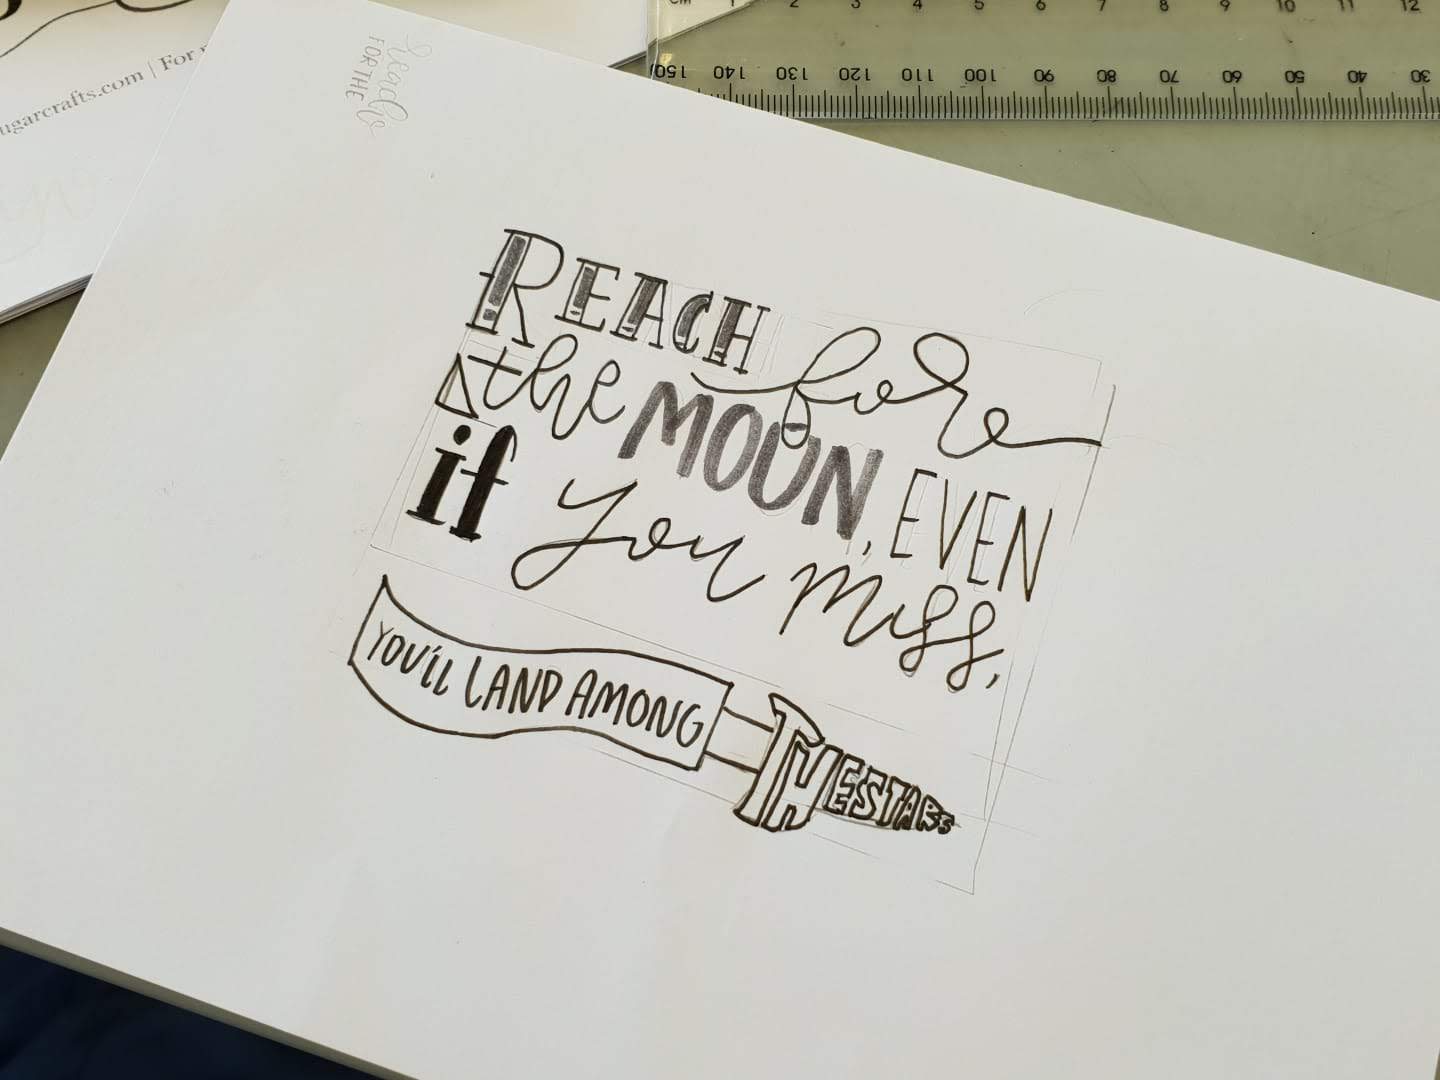 CM 1 2 3 4 5 6 7 8 9 10 11 12
150 140 130 120 110 100 90 80 70 60 50 40 30
ugarcrafts.com | For
Reach
FOR THE
REACH for
the MOON, EVEN
if you miss,
YOU'LL LAND AMONG
THE STARS